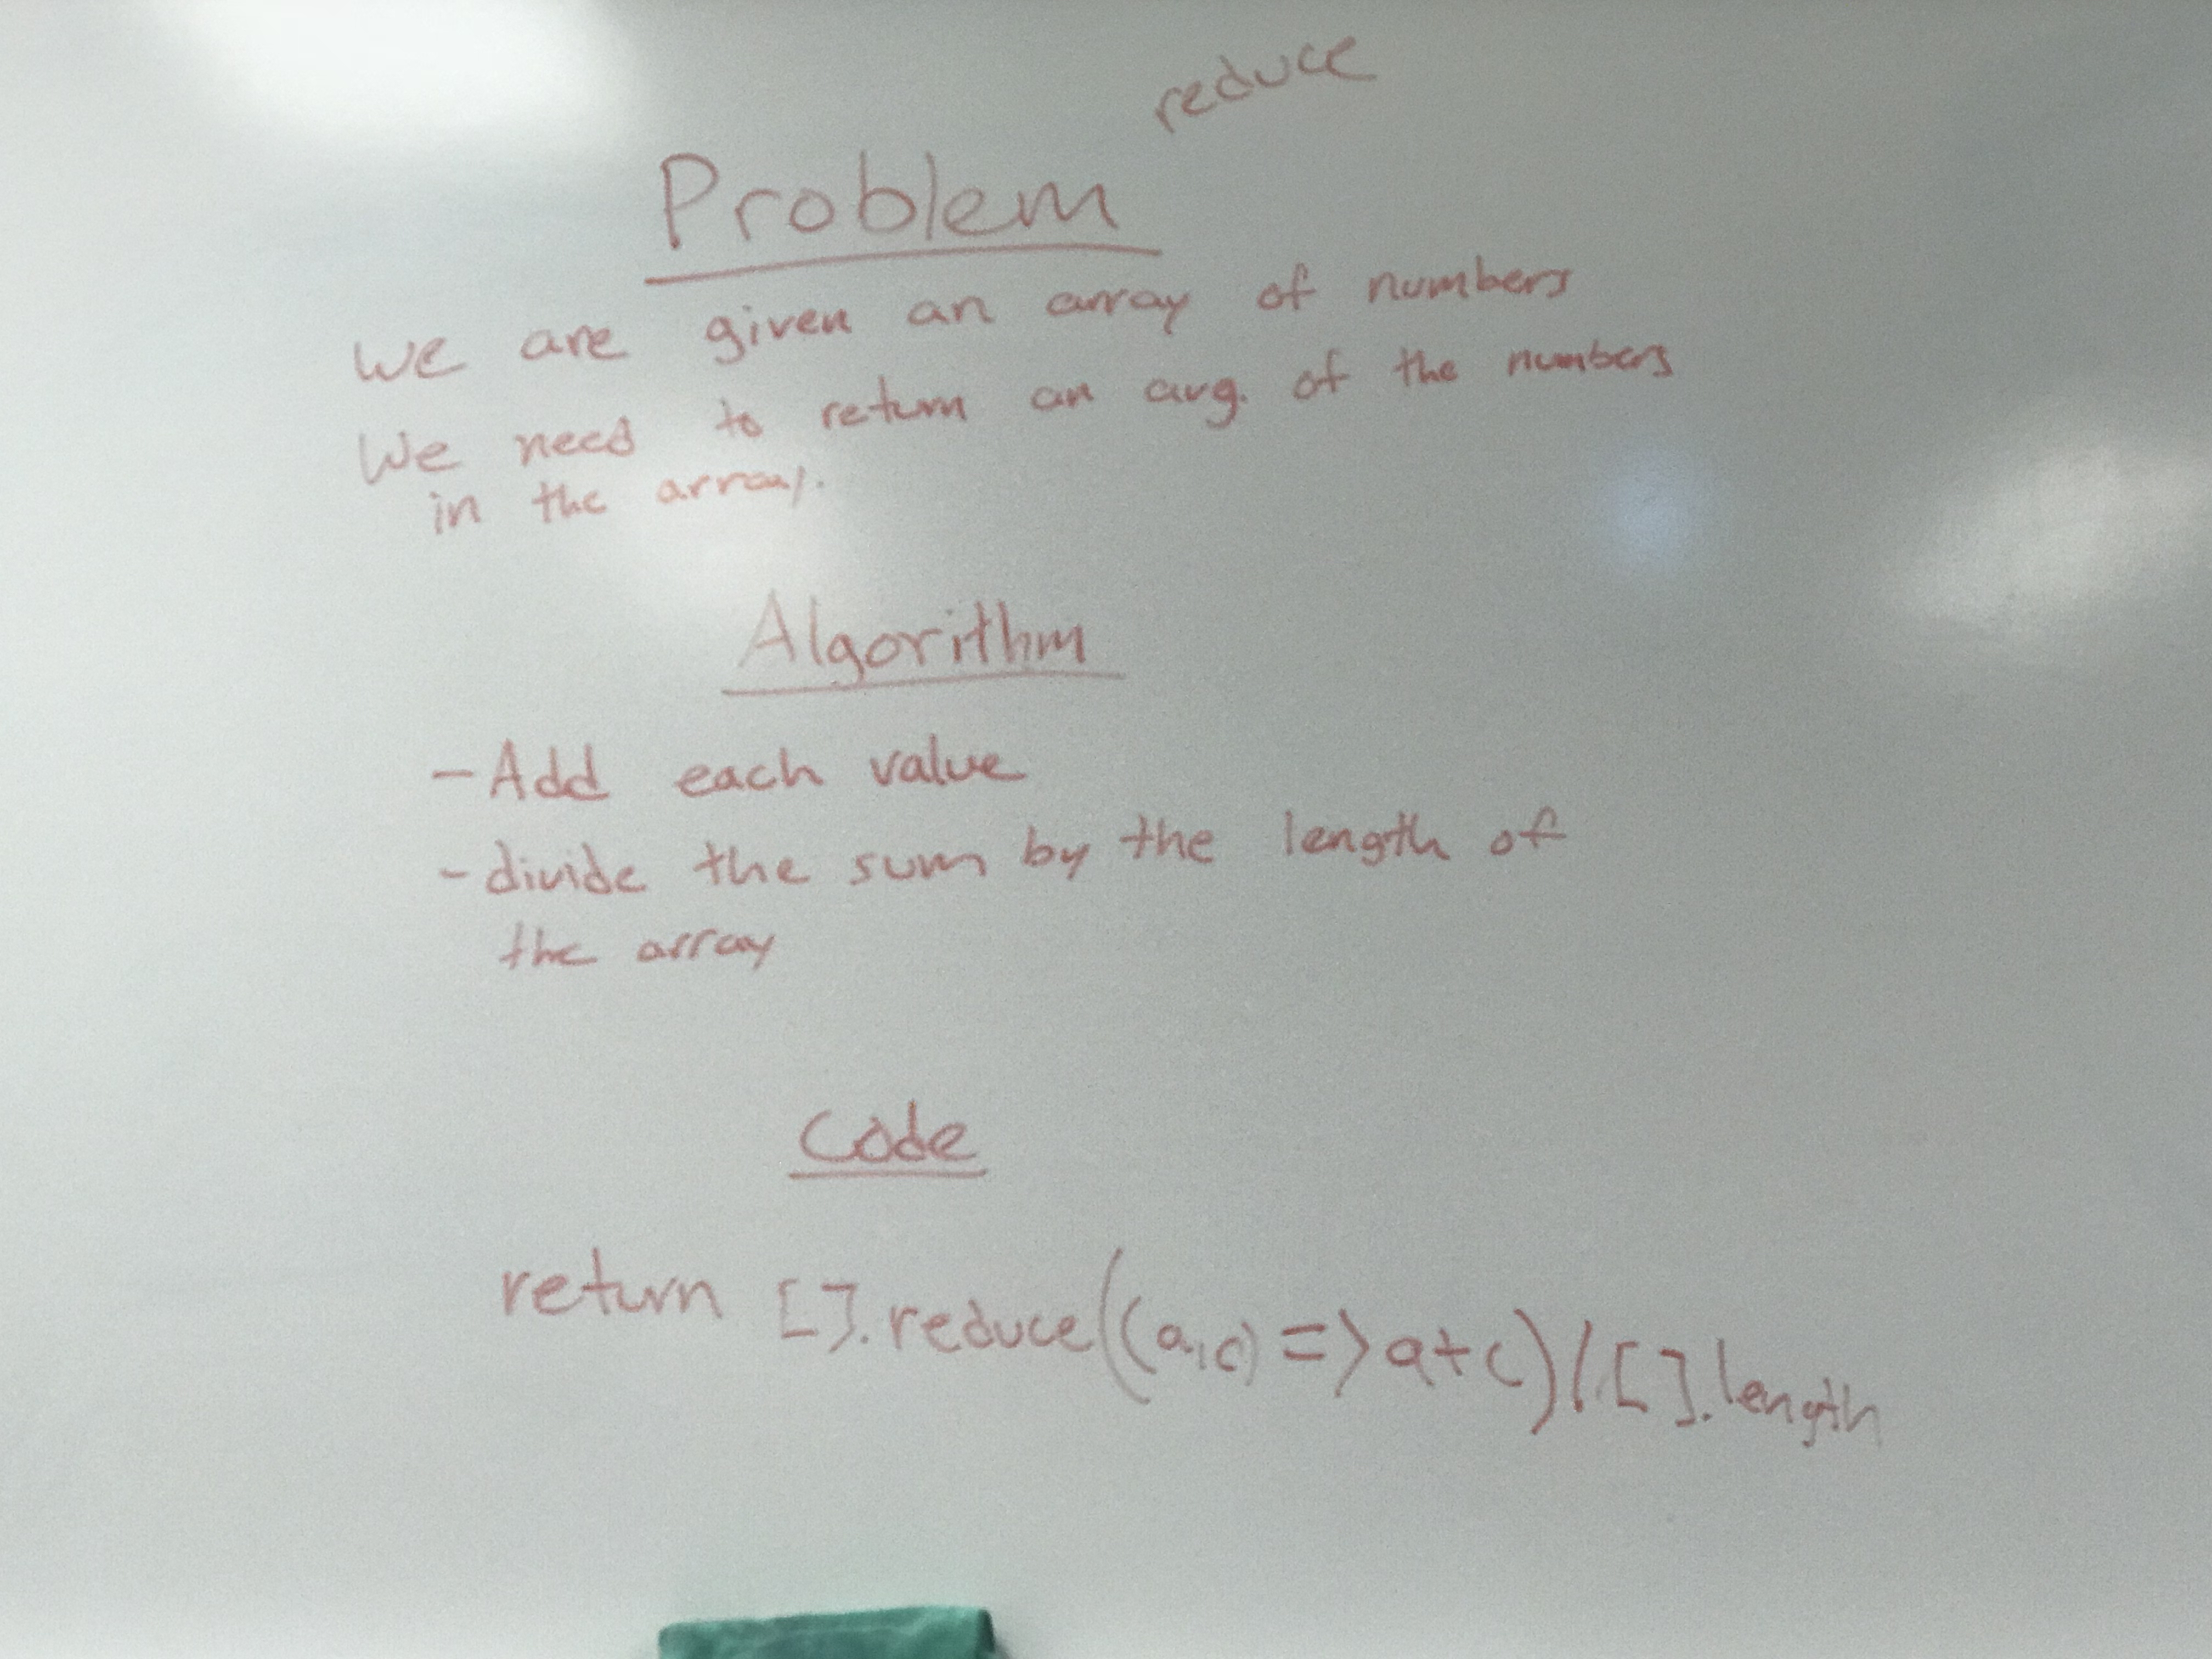 reduce
Problem
we are given an array of numbers
We need to return an avg. of the numbers
in the array.
Algorithm
- Add each value
- divide the sum by the length of
the array
Code
return [].reduce((a,c) => a+c)/[].length